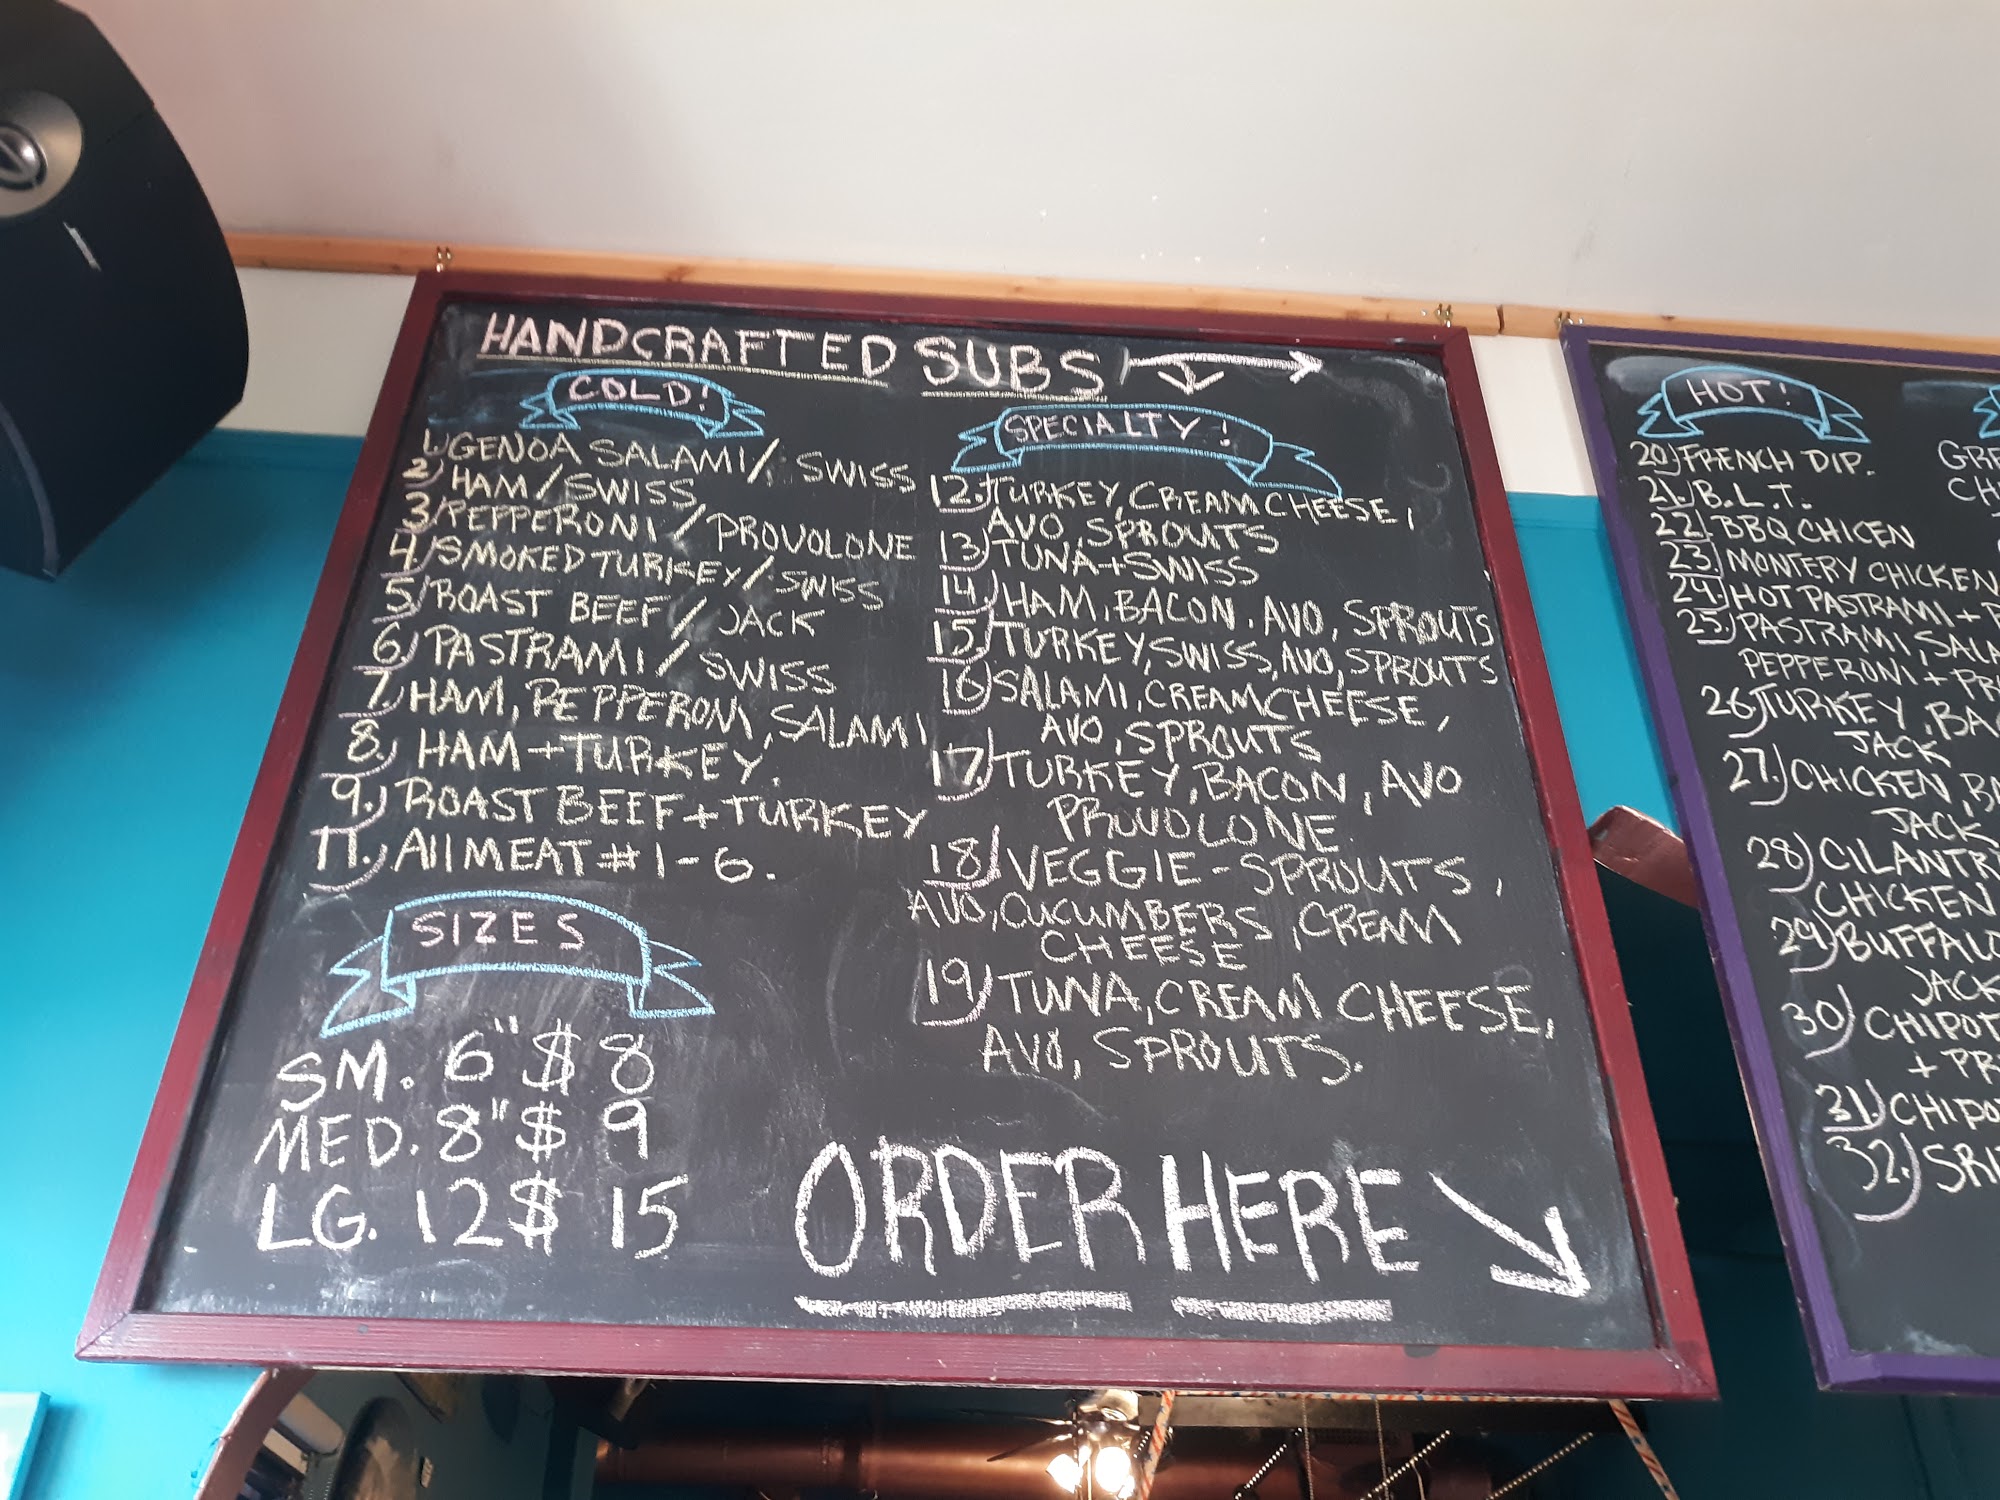 HANDCRAFTED SUBS
COLD!
1.) GENOA SALAMI / SWISS
2) HAM / SWISS
3) PEPPERONI / PROVOLONE
4.) SMOKED TURKEY / SWISS
5) ROAST BEEF / JACK
6) PASTRAMI / SWISS
7.) HAM, PEPPERONI, SALAMI
8.) HAM + TURKEY.
9.) ROAST BEEF + TURKEY
11.) All MEAT # 1 - 6.
SIZES
SM. 6" $ 8
MED. 8" $ 9
LG. 12 $ 15
SPECIALTY!
12.) TURKEY, CREAM CHEESE,
AVO, SPROUTS
13) TUNA + SWISS
14.) HAM, BACON, AVO, SPROUTS
15.) TURKEY, SWISS, AVO, SPROUTS
16) SALAMI, CREAM CHEESE,
AVO, SPROUTS
17) TURKEY, BACON, AVO
PROVOLONE
18.) VEGGIE - SPROUTS,
AVO, CUCUMBERS, CREAM
CHEESE
19) TUNA, CREAM CHEESE,
AVO, SPROUTS.
ORDER HERE
HOT!
20.) FRENCH DIP.
21.) B.L.T.
22.) BBQ CHICEN
23.) MONTERY CHICKEN
24.) HOT PASTRAMI +
25.) PASTRAMI,
PEPPERONI +
26.) TURKEY,
JACK
27.) CHICKEN,
JACK
28.)
CHICKEN
29.)
JACK
30.)
+
31.)
32.)